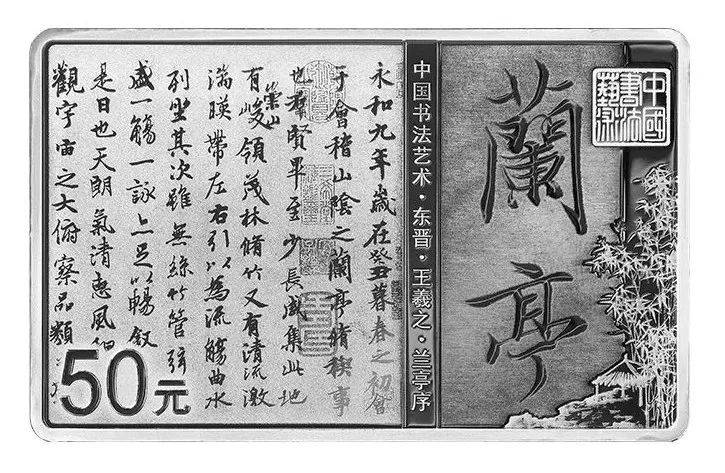 中國
書法
藝術
蘭亭
中国书法艺术·东晋·王羲之·兰亭序
永和九年歲在癸丑暮春之初會
于會稽山陰之蘭亭脩稧事
也羣賢畢至少長咸集此地
有崇山峻領茂林脩竹又有清流激
湍暎帶左右引以為流觴曲水
列坐其次雖無絲竹管弦
盛一觴一詠亦足以暢叙
是日也天朗氣清惠風和
觀宇宙之大俯察品類
50元